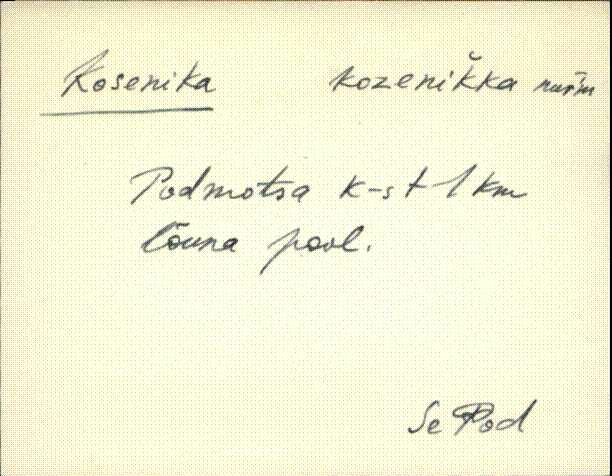 Kosenika kozeniǩka nuŕm
Podmotsa k-st 1 km
lõuna pool.
Se Pod